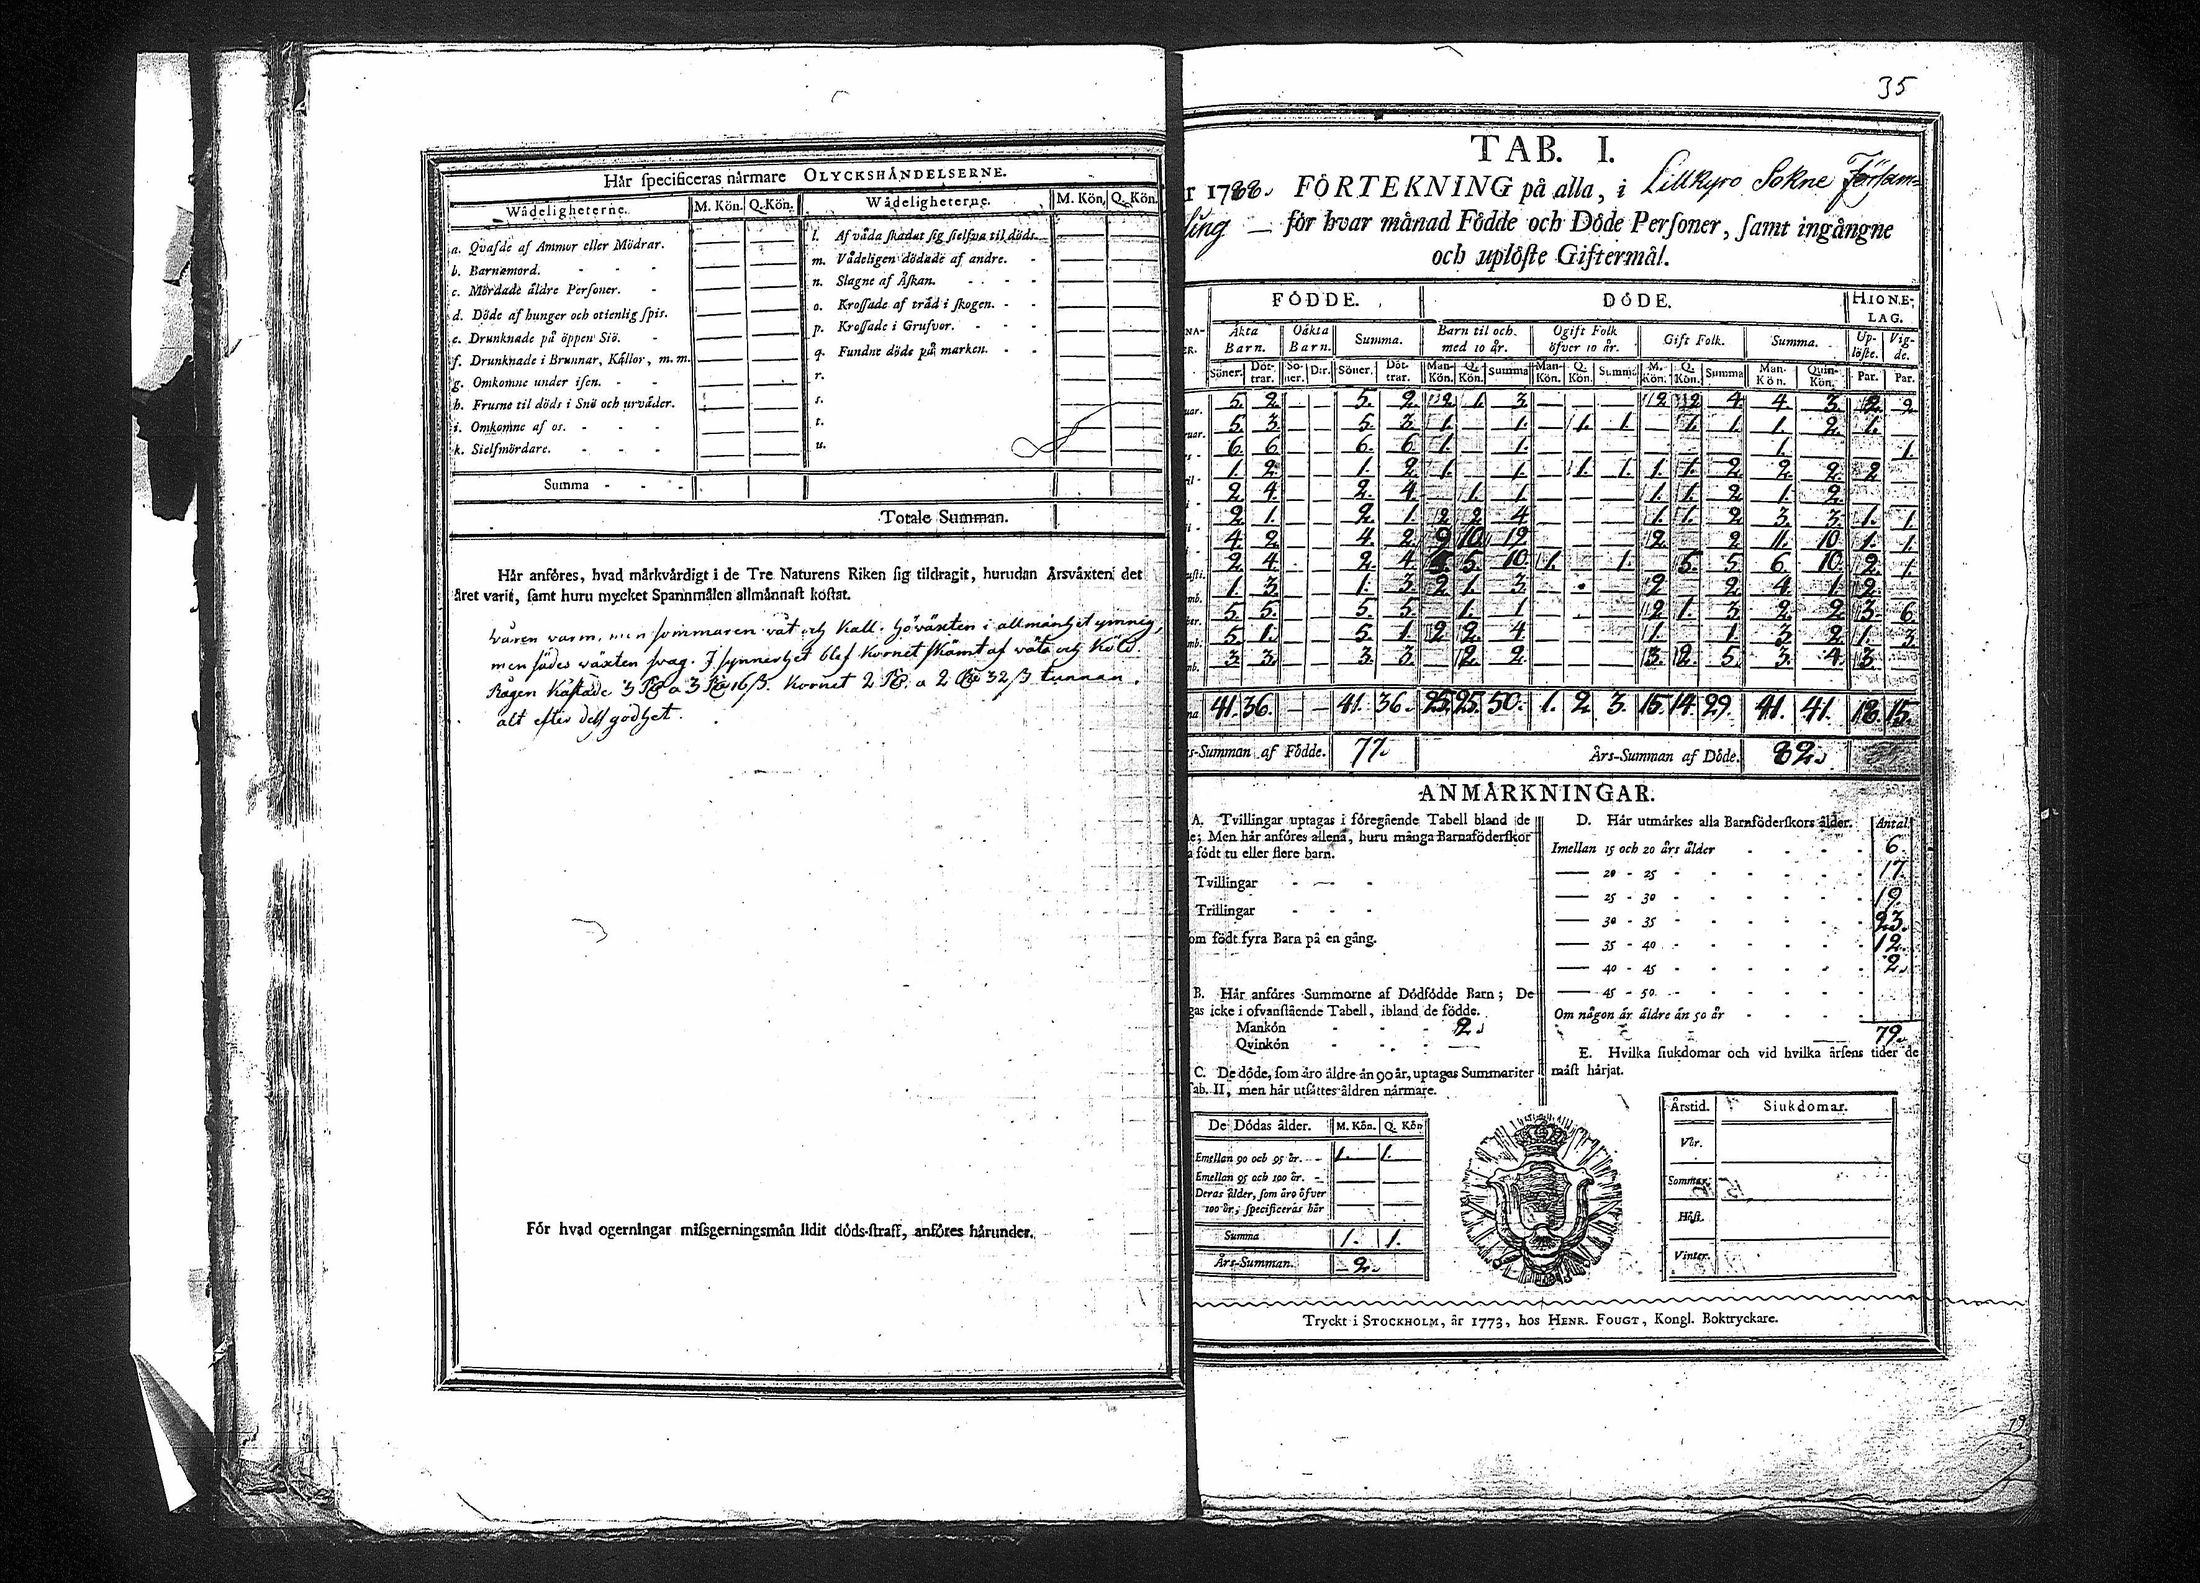 Hår specificeras nårmare OLYCKSHÅNDELSERNE.
Wådeligheterne. M. Kön. Q. Kön. Wådeligheterne. M. Kön. Q. Kön.
a. Qvafde af Ammor eller Mödrar.
b. Barnamord. - - -
c. Mördade äldre Personer. -
d. Döde af hunger och otienlig spis.
e. Drunknade på öppen Siö. -
f. Drunknade i Brunnar, Kållor, m. m.
g. Omkomne under isen. - -
h. Frusne til döds i Snö och urväder.
i. Omkomne af os. - - -
k. Sielfmördare. - - -
l. Af våda skadat sig sielfva til döds.
m. Vådeligen dödade af andre. -
n. Slagne af Åskan. - - - -
o. Krossade af träd i skogen. - -
p. Krossade i Grufvor. - - -
q. Fundne döde på marken. - -
r.
s.
t.
u.
Summa - - -
Totale Summan.
Hår anföres, hvad mårkvårdigt i de Tre Naturens Riken sig tildragit, hurudan Årsvåxten det
året varit, samt huru mycket Spannmålen allmånnast kostat.
Våren varm, men sommaren våt och kall. Höväxten i allmänhet ymnig,
men sädes växten svag. I synnerhet blef kornet skämt af väta och köld.
Rågen kåstade 3 Rd a 3 Rd 16 ß. Kornet 2 Rd. a 2 Rd 32 ß tunnan.
alt efter dess godhet.
För hvad ogerningar missgerningsmån lidit döds-straff, anföres hårunder.
35
TAB. I.
r 1788. FÖRTEKNING på alla, i Lillkyro Sokne Förlam=
ling — för hvar månad Födde och Döde Personer, samt ingångne
och uplöste Giftermål.
FÖDDE. DÖDE. HIONE-
LAG.
Åkta Barn. Oåkta Barn. Summa. Barn til och med 10 år. Ogift Folk öfver 10 år. Gift Folk. Summa. Up-löste. Vig-de.
Söner. Döt-trar. So-ner. D:r. Söner. Döt-trar. Man-Kön. Q. Kön. Summa Man-Kön. Q. Kön. Summa M. Kön. Q. Kön. Summa Man-Kön. Quin-Kön. Par. Par.
uar. 5. 2. — — 5. 2. 2. 1. 3. — — — 2. 2. 4. 4. 3. 2. 2.
ruar. 5. 3. — — 5. 3. 1. 1. — 1. 1. 1. 1. 1. 2. 1.
6. 6. — — 6. 6. 1. 1. 1. 1.
ril - 1. 2. — — 1. 2. 1. 1. 1. 1. 1. 1. 2. 2. 2. 2.
2. 4. — — 2. 4. 1. 1. 1. 1. 2. 1. 2.
2. 1. — — 2. 1. 2. 2. 4. 1. 1. 2. 3. 3. 1. 1.
4. 2. — — 4. 2. 9. 10. 19. 2. 2. 11. 10. 1. 1.
usti. 2. 4. — — 2. 4. 5. 5. 10. 1. 1. 5. 5. 6. 10. 2. 1.
mb. 1. 3. — — 1. 3. 2. 1. 3. 2. 2. 4. 1. 2.
ber. 5. 5. — — 5. 5. 1. 1. 2. 1. 3. 2. 2. 3. 6.
mb. 5. 1. — — 5. 1. 2. 2. 4. 1. 1. 3. 2. 1. 3.
mb. 3. 3. — — 3. 3. 2. 2. 3. 2. 5. 3. 4. 3.
na 41. 36. — — 41. 36. 25. 25. 50. 1. 2. 3. 15. 14. 29. 41. 41. 18. 15.
s-Summan af Födde. 77. Års-Summan af Döde. 82.
ANMÅRKNINGAR.
A. Tvillingar uptagas i föregående Tabell bland de
e; Men hår anföres allena, huru många Barnaföderskor
a födt tu eller flere barn.
Tvillingar - — -
Trillingar - - -
om födt fyra Barn på en gång.
B. Hår anföres Summorne af Dödfödde Barn; De
gas icke i ofvanstående Tabell, ibland de födde.
Mankön - - - 2.
Qvinkön - - - —
C. De döde, som åro åldre ån 90 år, uptagas Summariter
ab. II, men hår utsåttes åldren nårmare.
De Dödas ålder. M. Kön. Q. Kön
Emellan 90 och 95 år. - - 1. 1.
Emellan 95 och 100 år. -
Deras ålder, som åro öfver
100 år, specificeras hår
Summa 1. 1.
Års-Summan. 2.
D. Hår utmårkes alla Barnföderskors ålder. Antal.
Imellan 15 och 20 års ålder - - - - 6.
— 20 - 25 - - - - - - 17.
— 25 - 30 - - - - - - 19.
— 30 - 35 - - - - - - 23.
— 35 - 40 - - - - - - 12.
— 40 - 45 - - - - - - 2.
— 45 - 50. - - - - - -
Om någon är äldre än 50 år - - - -
79.
E. Hvilka siukdomar och vid hvilka årsens tider de
måst hårjat.
Årstid. Siukdomar.
Vår.
Sommar.
Höst.
Vinter.
Tryckt i STOCKHOLM, år 1773, hos HENR. FOUGT, Kongl. Boktryckare.